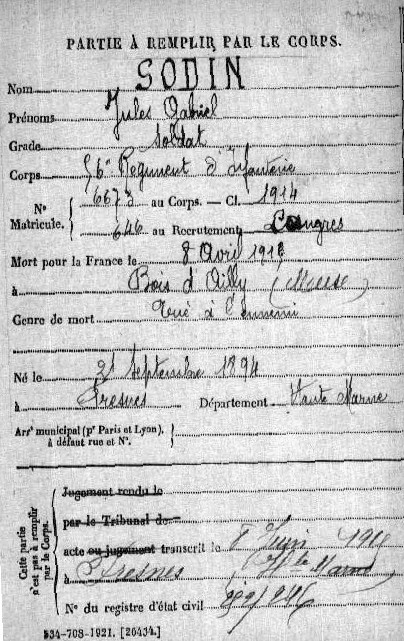 PARTIE À REMPLIR PAR LE CORPS.
Nom SODIN
Prénoms Jules Gabriel
Grade soldat
Corps 56e Régiment d'Infanterie
N° Matricule. { 6673 au Corps. — Cl. 1914
646 au Recrutement Langres
Mort pour la France le 8 Avril 191
à Bois d'Ailly (Meuse)
Genre de mort Tué à l'ennemi
Né le 21 Septembre 1894
à Fresnes Département Haute Marne
Arrt municipal (pr Paris et Lyon), à défaut rue et N°. {
Cette partie n'est pas à remplir par le Corps. {
Jugement rendu le
par le Tribunal de
acte ou jugement transcrit le 8 Juin
à Fresnes (Hte Marne)
N° du registre d'état civil
534-708-1921. [26434.]